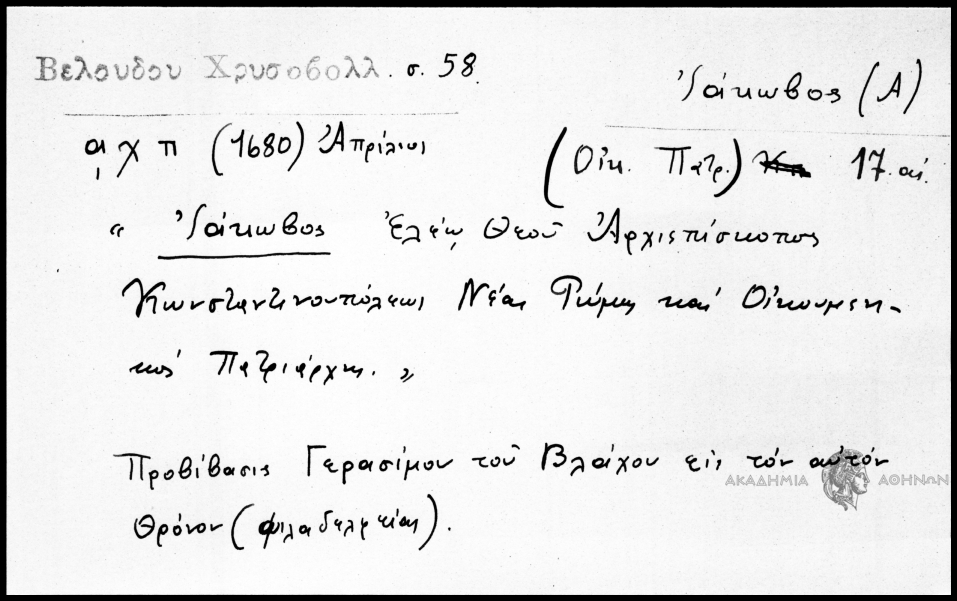 Βελουδου Χρυσοβολλ. σ. 58.
Ἰάκωβος (Α)
͵αχπ (1680) Ἀπρίλιος
(Οἰκ. Πατρ.) 17. αἰ.
« Ἰάκωβος ἐλέῳ Θεοῦ Ἀρχιεπίσκοπος
Κωνσταντινουπόλεως Νέας Ρώμης καὶ Οἰκουμενι-
κὸς Πατριάρχης. »
Προβίβασις Γερασίμου τοῦ Βλάχου εἰς τὸν αὐτὸν
θρόνον (Φιλαδελφείας).
ΑΚΑΔΗΜΙΑ ΑΘΗΝΩΝ